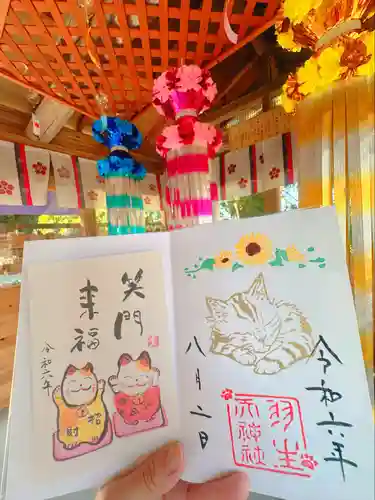 笑門
来福
令和六年
財
招
令和六年
羽生
神社
八月二日